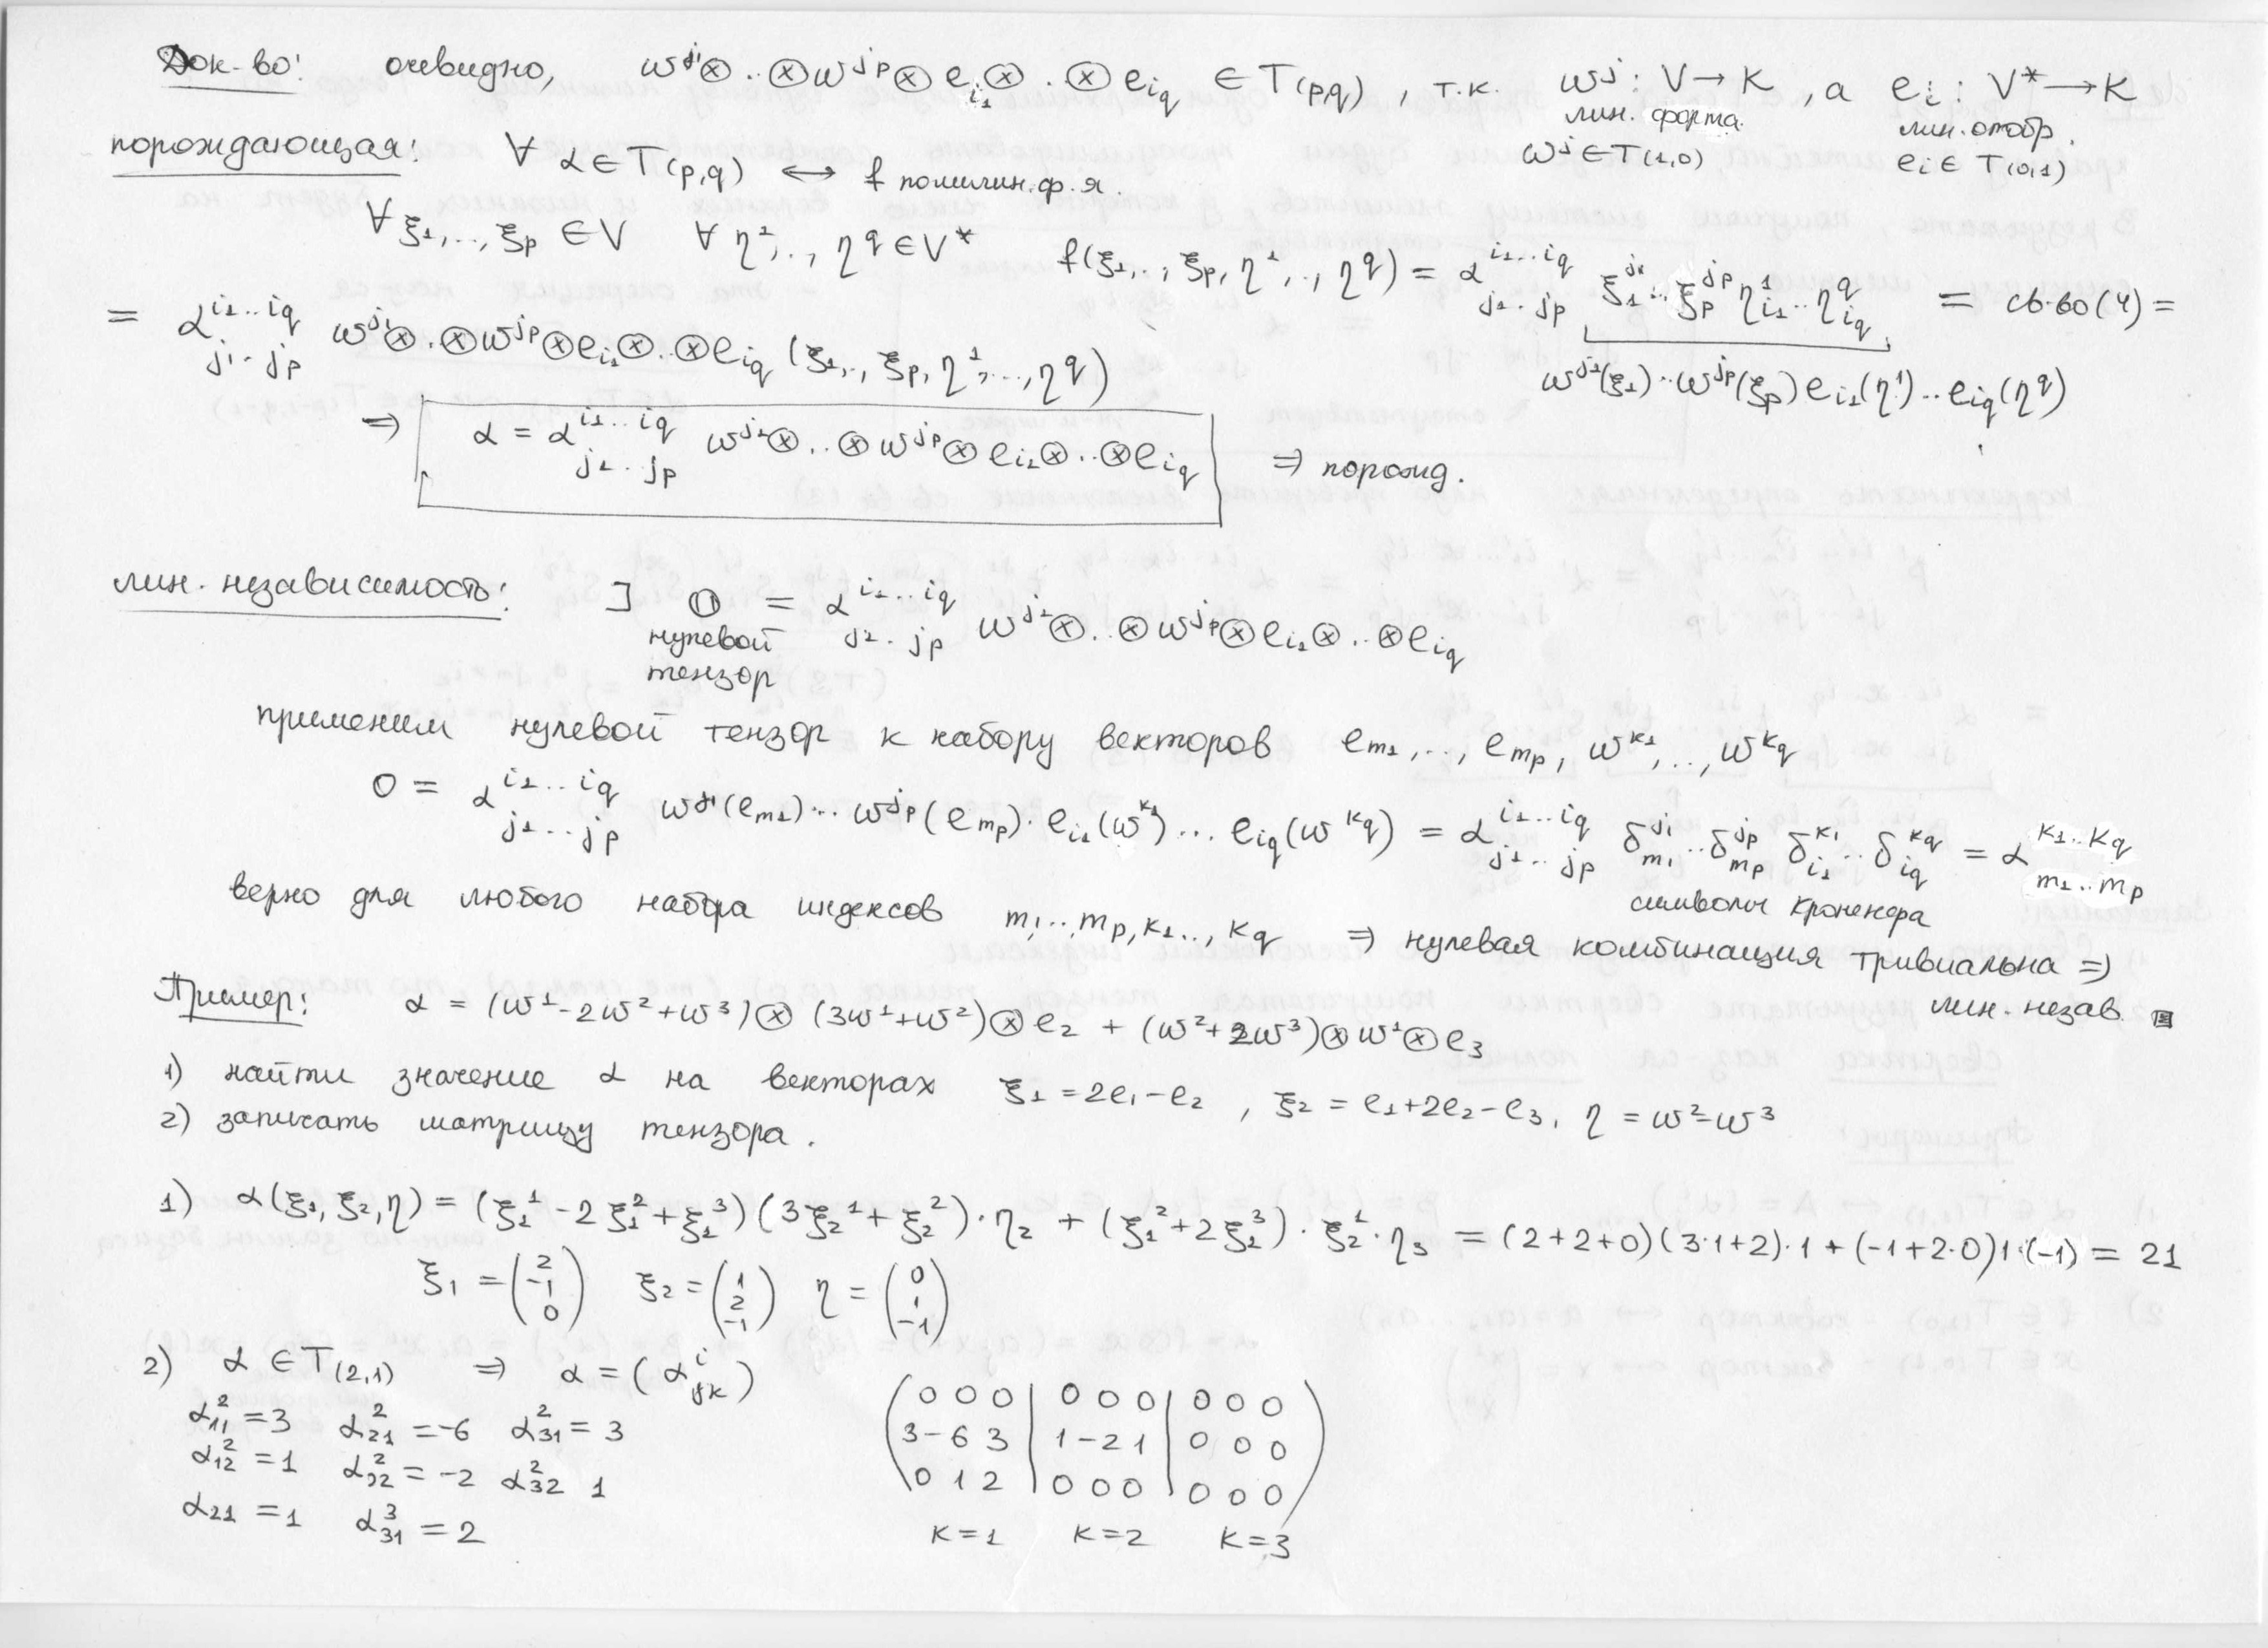 Док-во: очевидно, ω^{j1}⊗..⊗ω^{jp}⊗e_{i1}⊗.⊗e_{iq} ∈ T(p,q), т.к. ω^j: V→K, а e_i: V*→K
лин. форма лин. отобр.
ω^j ∈ T(1,0) e_i ∈ T(0,1)
порождающая: ∀ α ∈ T(p,q) ↔ f полилин. ф.я.
∀ ξ_1,.., ξ_p ∈ V ∀ η^1,.., η^q ∈ V* f(ξ_1,.., ξ_p, η^1,.., η^q) = α^{i1..iq}_{j1..jp} ξ_1^{j1}..ξ_p^{jp} η^1_{i1}..η^q_{iq} = св-во(4) =
ω^{j1}(ξ_1)..ω^{jp}(ξ_p) e_{i1}(η^1)..e_{iq}(η^q)
= α^{i1..iq}_{j1..jp} ω^{j1}⊗.⊗ω^{jp}⊗e_{i1}⊗..⊗e_{iq} (ξ_1,.., ξ_p, η^1,.., η^q)
⇒ α = α^{i1..iq}_{j1..jp} ω^{j1}⊗..⊗ω^{jp}⊗e_{i1}⊗..⊗e_{iq} ⇒ порожд.
лин. независимость: ∃ 𝟘 = α^{i1..iq}_{j1..jp} ω^{j1}⊗..⊗ω^{jp}⊗e_{i1}⊗..⊗e_{iq}
нулевой
тензор
применим нулевой тензор к набору векторов e_{m1},.., e_{mp}, ω^{k1},.., ω^{kq}
0 = α^{i1..iq}_{j1..jp} ω^{j1}(e_{m1})..ω^{jp}(e_{mp})·e_{i1}(ω^{k1})...e_{iq}(ω^{kq}) = α^{i1..iq}_{j1..jp} δ^{j1}_{m1}..δ^{jp}_{mp} δ^{k1}_{i1}..δ^{kq}_{iq} = α^{k1..kq}_{m1..mp}
символы Кронекера
верно для любого набора индексов m_1..,m_p, k_1.., k_q ⇒ нулевая комбинация тривиальна ⇒
лин. незав.
Пример: α = (ω^1-2ω^2+ω^3)⊗(3ω^1+ω^2)⊗e_2 + (ω^2+2ω^3)⊗ω^1⊗e_3
1) найти значение α на векторах ξ_1 = 2e_1-e_2, ξ_2 = e_1+2e_2-e_3, η = ω^2-ω^3
2) записать матрицу тензора.
1) α(ξ_1, ξ_2, η) = (ξ_1^1 - 2ξ_1^2 + ξ_1^3)(3ξ_2^1 + ξ_2^2)·η_2 + (ξ_1^2 + 2ξ_1^3)·ξ_2^1·η_3 = (2+2+0)(3·1+2)·1 + (-1+2·0)1·(-1) = 21
ξ_1 = (2 -1 0) ξ_2 = (1 2 -1) η = (0 1 -1)
2) α ∈ T(2,1) ⇒ α = (α^i_{jk})
α^2_{11} = 3 α^2_{21} = -6 α^2_{31} = 3
α^2_{12} = 1 α^2_{22} = -2 α^2_{32} 1
α_{21} = 1 α^3_{31} = 2
0 0 0 | 0 0 0 | 0 0 0
3 -6 3 | 1 -2 1 | 0 0 0
0 1 2 | 0 0 0 | 0 0 0
K=1 K=2 K=3